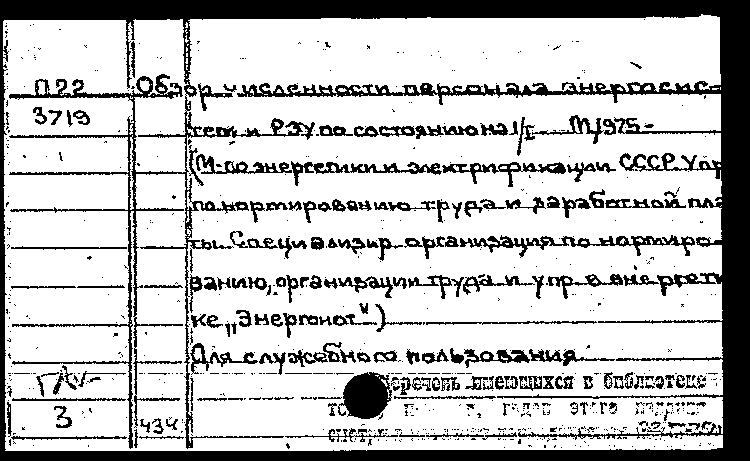 П22 Обзор численности персонала энергосис-
3719 тем и РЭУ по состоянию на 1/I М, 1975-
(М-во энергетики и электрификации СССР. Упр
по нормированию труда и заработной пла
ты. Специализир. организация по нормиро-
ванию, организации труда и упр. в энергети
ке „Энергонот")
Для служебного пользования.
Перечень имеющихся в библиотеке
3 434 этого